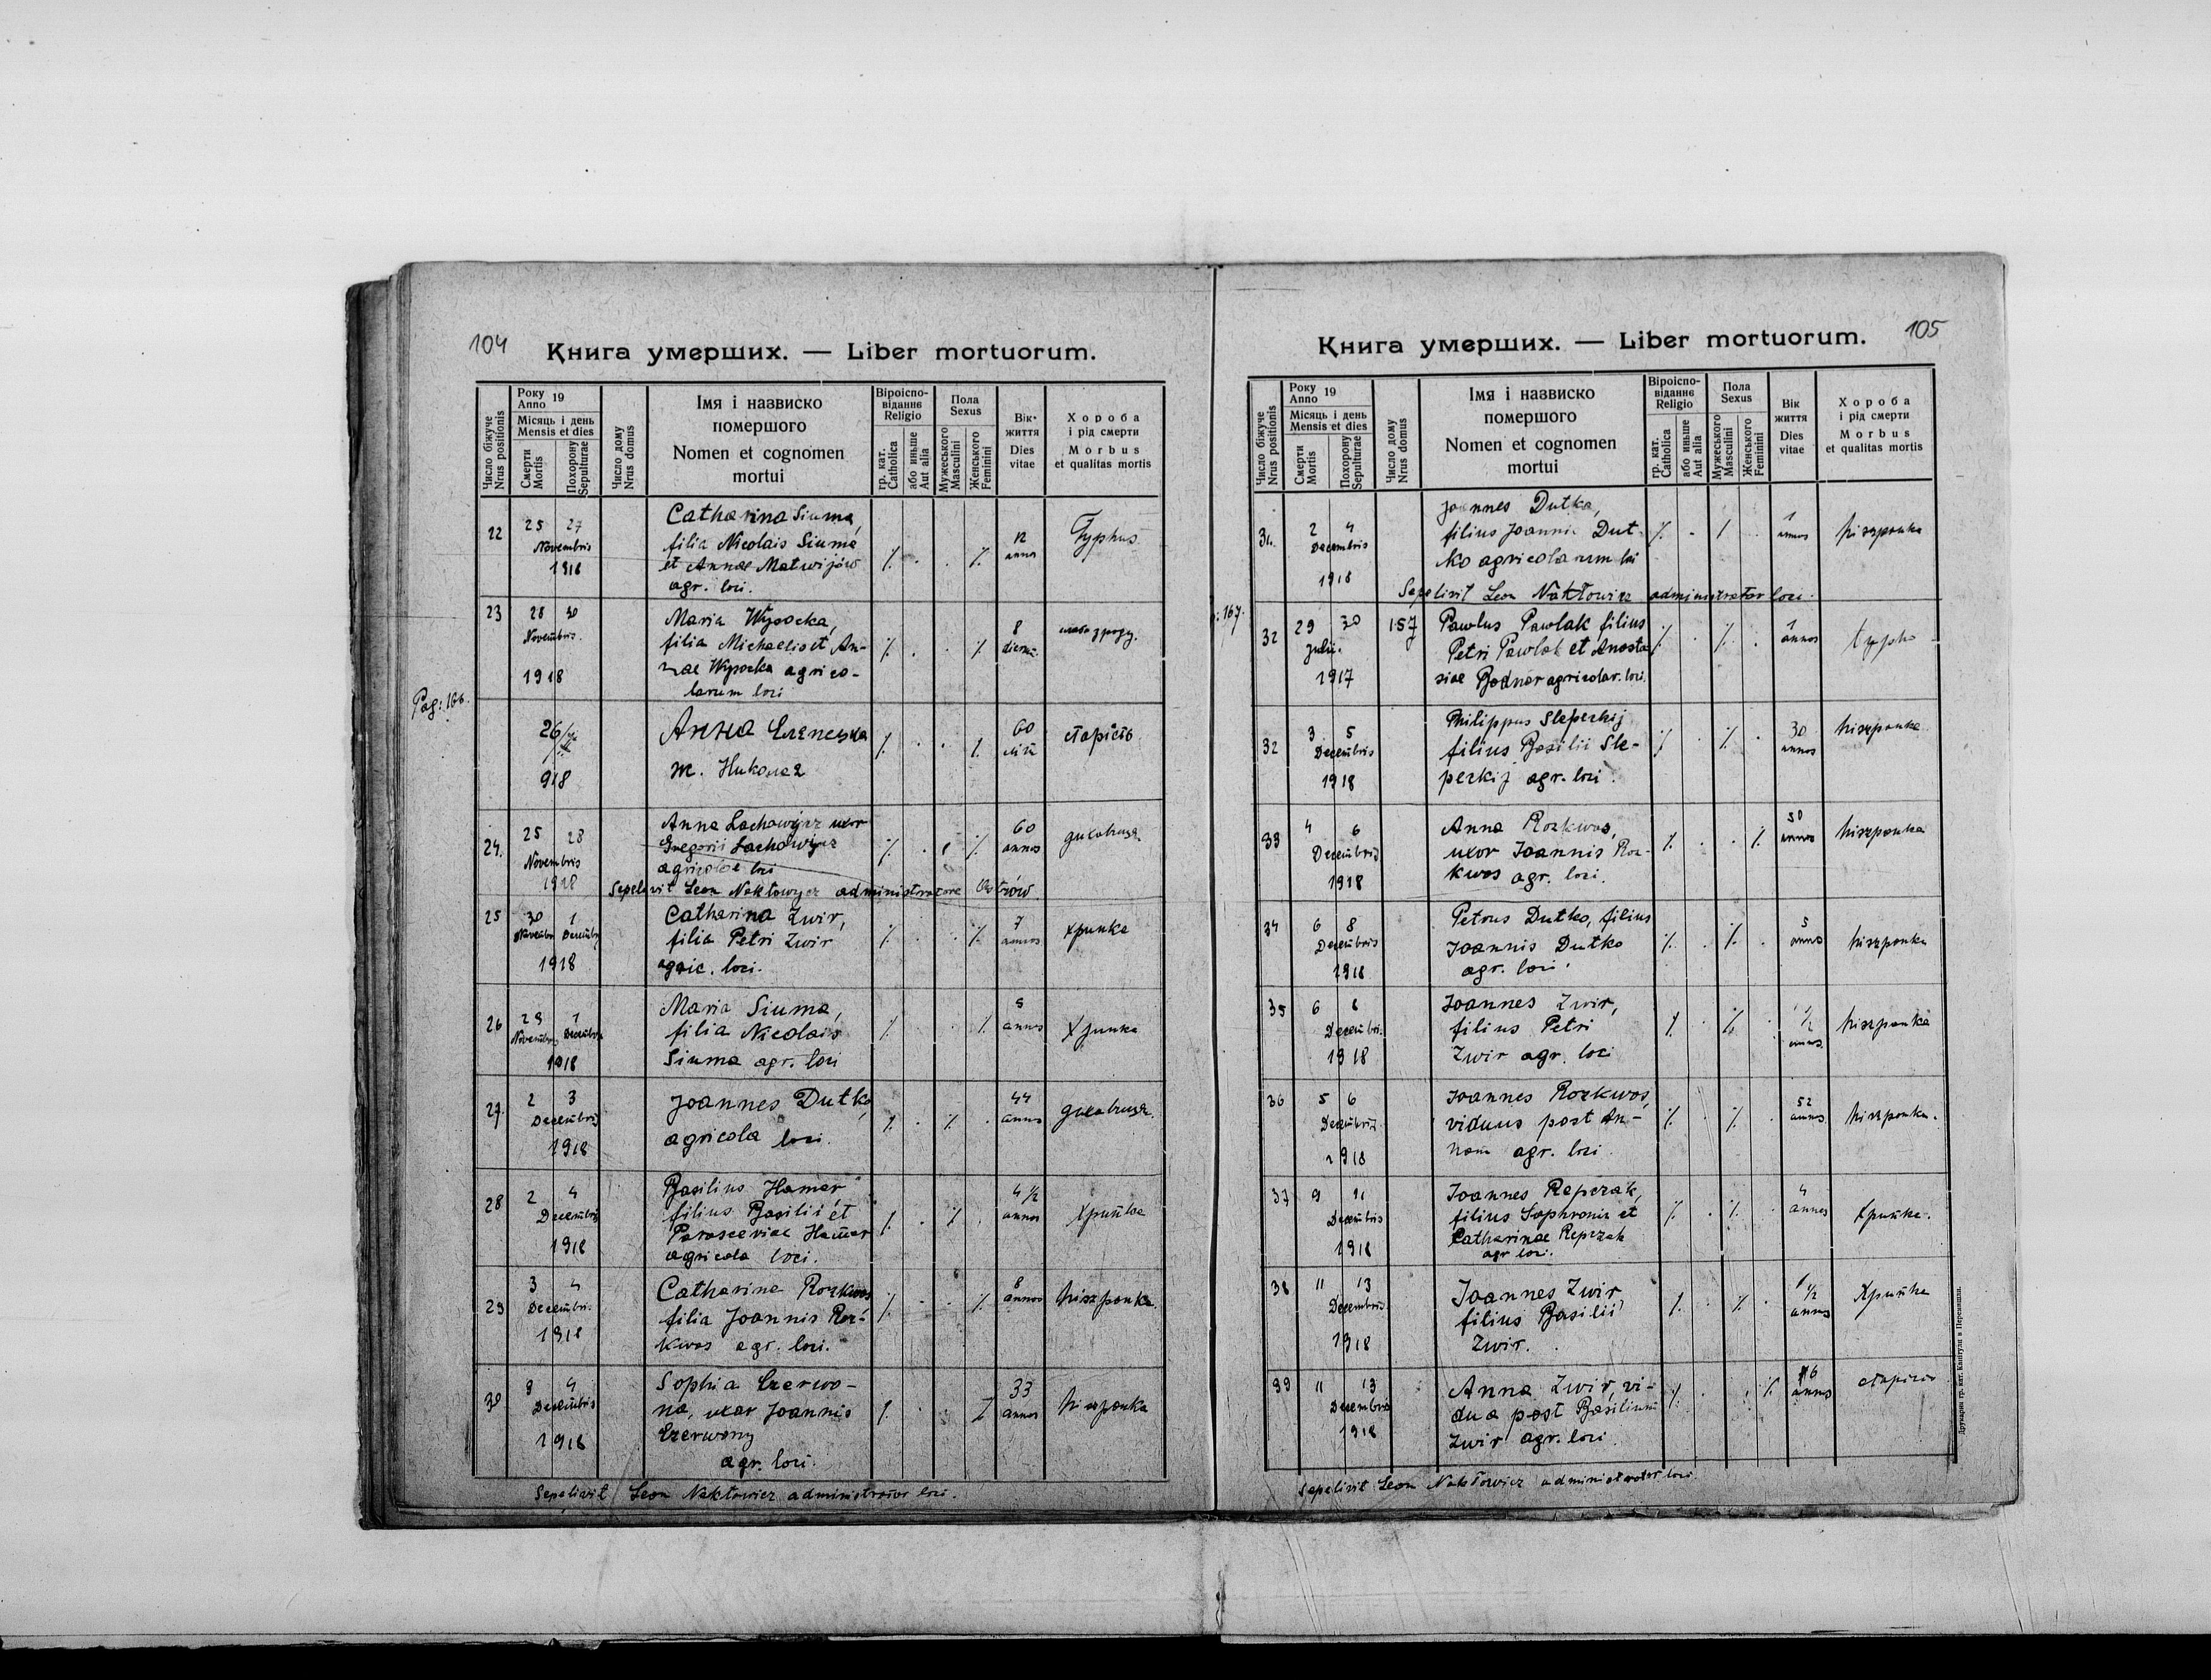 104
Книга умерших. — Liber mortuorum.
Число біжуче Nrus positionis
Року Anno 19
Місяць і день Mensis et dies
Смерти Mortis
Похорону Sepulturae
Число дому Nrus domus
Імя і назвиско помершого
Nomen et cognomen mortui
Віроісповіданнє Religio
гр. кат. Catholica
або иньше Aut alia
Пола Sexus
Мужеського Masculini
Женського Feminini
Вік життя Dies vitae
Хороба і рід смерти
Morbus et qualitas mortis
22 25 27 Novembris 1918
Catharina Siuma,
filia Nicolais Siuma
et Annae Matwijów
agr. loci.
12 annos Typhus
23 28 30 Novembris. 1918
Maria Wysocka,
filia Michaelis et An-
nae Wysocka agrico-
larum loci
8 dierum
Pag: 166.
918
Анна
ж. Николая
60 літ старість
24. 25 28 Novembris 1918
Anna Lachowycz uxor
Gregorii Lachowycz
agricolae loci
60 annos
Sepelivit Leon Nakłowycz administratore Ostrów.
25 30 Novembr 1 Decembr 1918
Catharina Zwir,
filia Petri Zwir
agric. loci.
7 annos хрипка
26 29 Novembris 1 Decembris 1918
Maria Siuma,
filia Nicolais
Siuma agr. loci
annos хрипка
27. 2 3 Decembris 1918
Joannes Dutko
agricola loci.
44 annos
28 2 4 Decembris 1918
Basilius Hamar
filius Basilii et
Parasceviae Hamar
agricola loci.
4 1/2 annos хрипка
29 3 4 Decembri. 1918
Catharina Rozkwas
filia Joannis Roz-
kwas agr. loci.
8 annos hiszpanka.
30 4 Decembris 1918
Sophia Czerwo-
na, uxor Joannis
Czerwony
agr. loci.
33 annos hiszpanka
Sepelivit Leon Nakłowicz administrator loci.
105
Книга умерших. — Liber mortuorum.
Число біжуче Nrus positionis
Року Anno 19
Місяць і день Mensis et dies
Смерти Mortis
Похорону Sepulturae
Число дому Nrus domus
Імя і назвиско помершого
Nomen et cognomen mortui
Віроісповіданнє Religio
гр. кат. Catholica
або иньше Aut alia
Пола Sexus
Мужеського Masculini
Женського Feminini
Вік життя Dies vitae
Хороба і рід смерти
Morbus et qualitas mortis
31. 2 4 Decembris 1918
Joannes Dutka,
filius Joannis Dut-
ko agricolarum loci
1 annos hiszpanka
Sepelivit Leon Nakłowicz administrator loci.
: 167.
32 29 30 Julii. 1917 157
Pawlus Pawlak filius
Petri Pawlak et Anasta-
siae Bodnar agricolar. loci.
1 annos typho
32 3 5 Decembris 1918
Philippus Sleperkij
filius Basilii Sle-
perkij agr. loci.
30 annos hiszpanka
33 4 6 Decembris 1918
Anna Rozkwas,
uxor Joannis Roz-
kwas agr. loci.
50 annos hiszpanka
34 6 8 Decembris 1918
Petrus Dutko, filius
Joannis Dutko
agr. loci.
5 annos hiszpanka
35 6 Decembri. 1918
Joannes Zwir,
filius Petri
Zwir agr. loci
1/2 annos. hiszpanka
36 5 6 Decembris. 1918
Joannes Rozkwas,
viduus post An-
nam agr. loci.
52 annos hiszpanka.
37 9 11 Decembris 1918
Joannes Repczak,
filius Sophronia et
Catharinae Repczak
agr loci.
4 annos хрипка.
38 11 13 Decembris 1918
Joannes Zwir
filius Basilii
Zwir.
1/2 annos хрипка
39 11 13 Decembris 1918
Anna Zwir, vi-
dua post Basilium
Zwir agr. loci.
annos старість
Sepelivit Leon Nakłowicz administrator loci.
Друкарня гр. кат. Капітули в Перемишли.